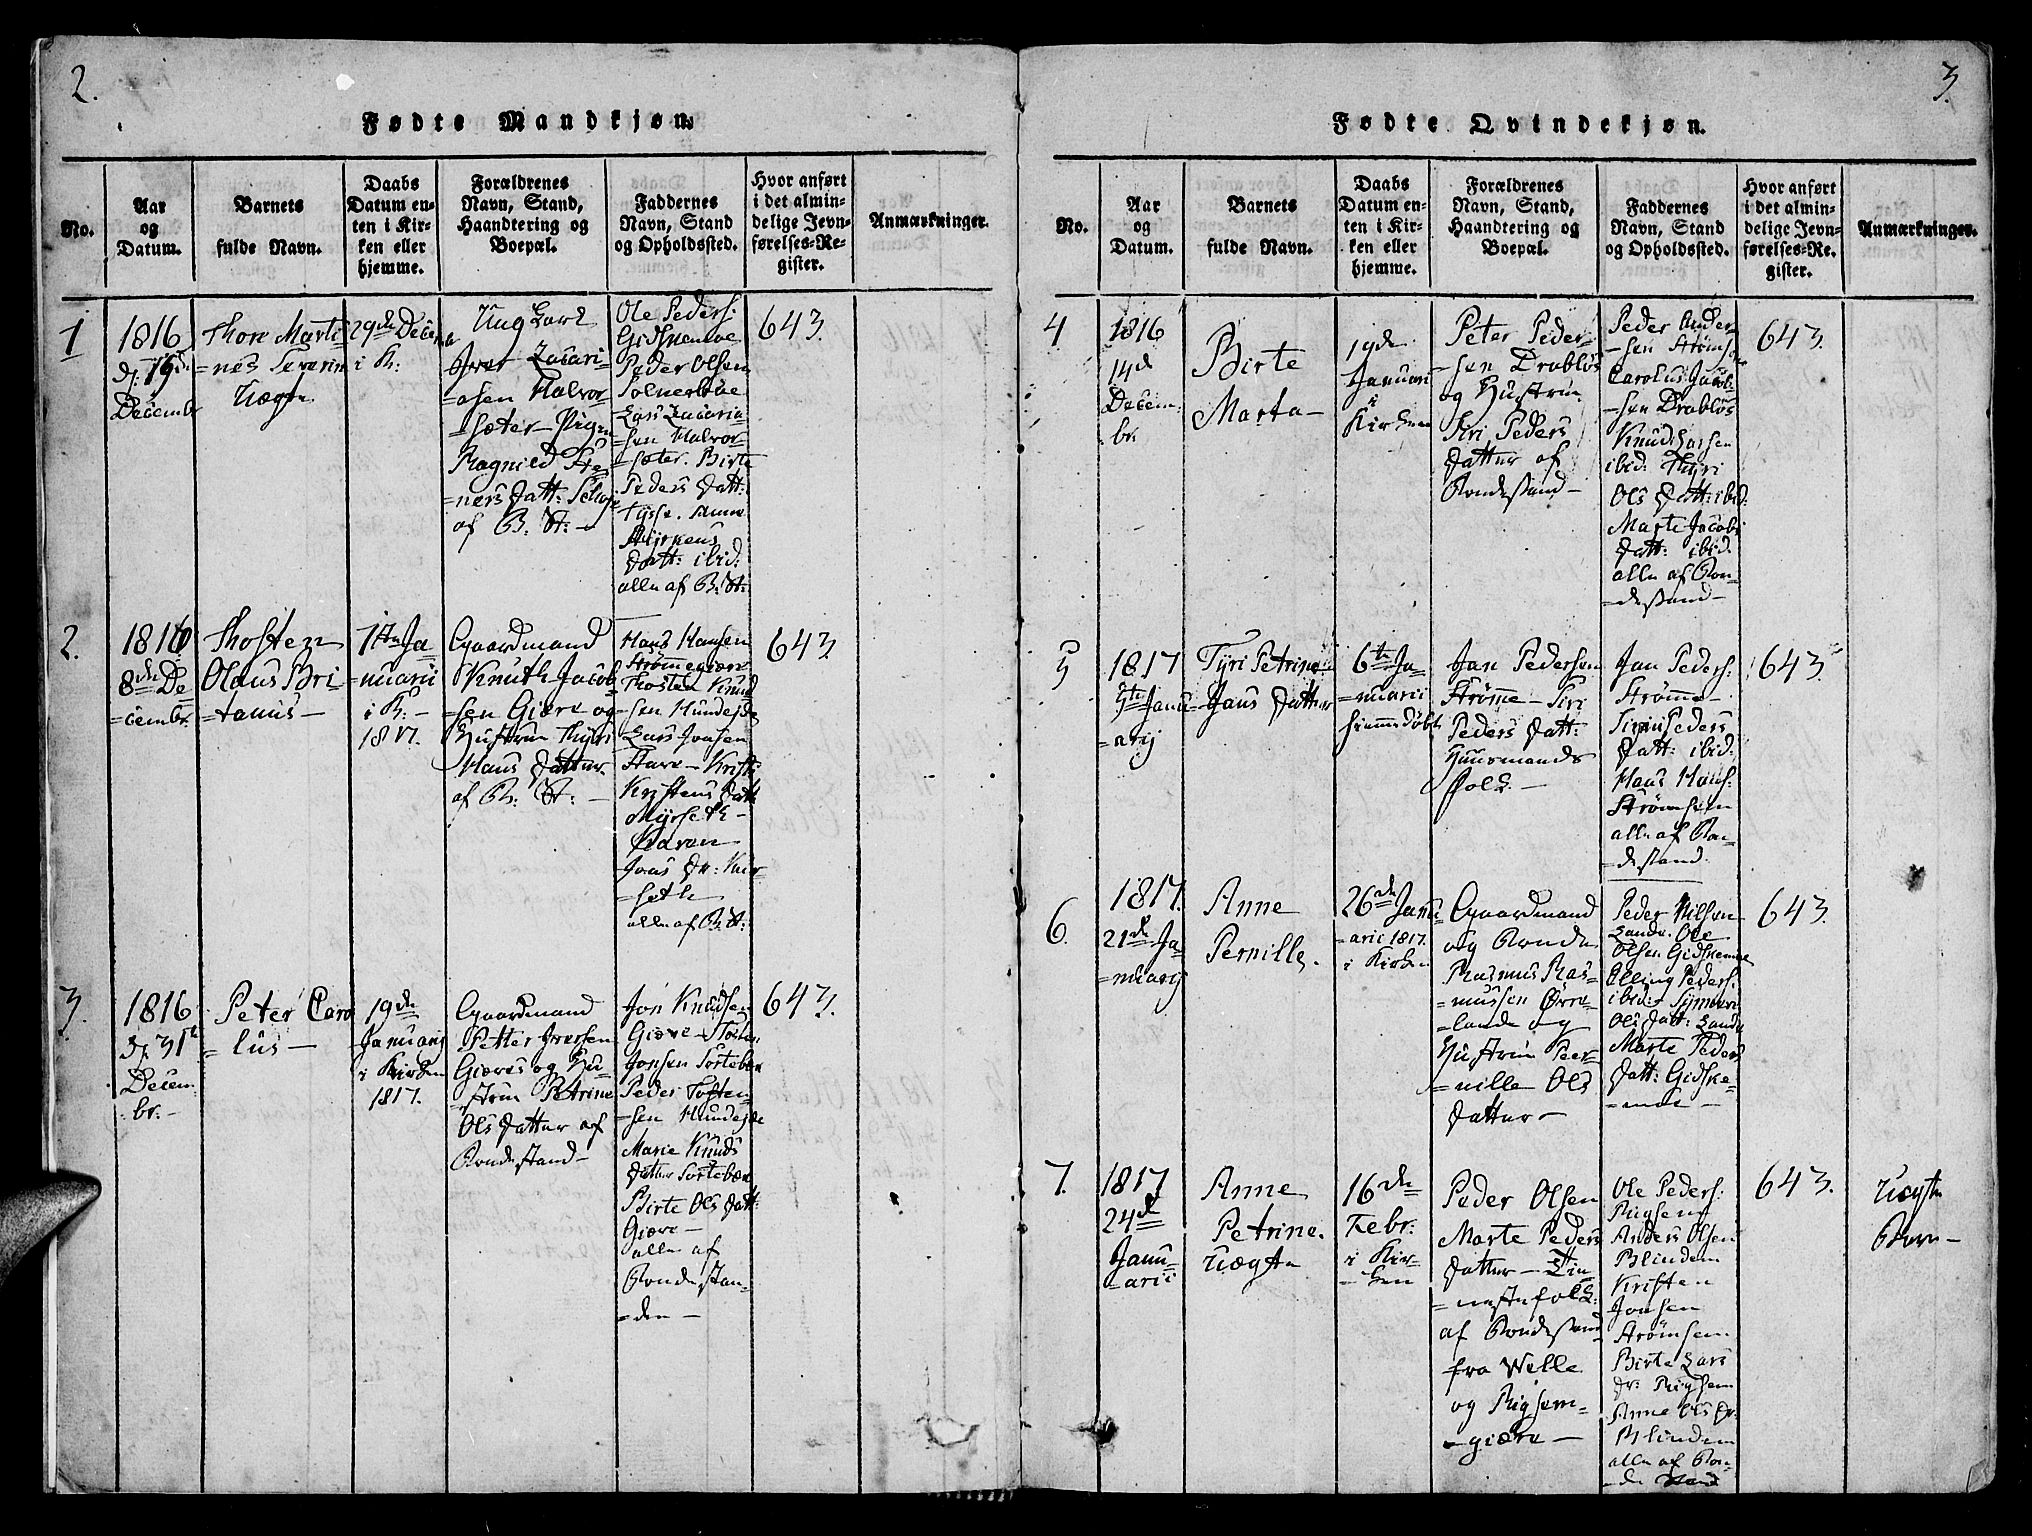 2.
Fødte Mandkjøn.
No.
Aar
og
Datum.
Barnets
fulde Navn.
Daabs
Datum en-
ten i Kir-
ken eller
hjemme.
Forældrenes
Navn, Stand,
Haandtering og
Boepæl.
Faddernes
Navn, Stand
og Opholdssted.
Hvor anført
i det almin-
delige Jevn-
førelses-Re-
gister.
Anmærkninger.
1
1816
d: 19de
Decembr
Thore Marti
=nes Severin
Uægte
29de Decem
i K:
Ung Karl
Iver Zacari
=asen Halvor
=sæter - Pigen
Ragnild Ste
=ners Datt:
af B: St: -
Ole Peders:
Gidskemoe
Peder Olsen
Solnerböe
Lars Zacaria
=sen Halvor
=sæter. Birte
Peders Datt:
Tysse.
Datt: ibid:
alle af B: St:
643.
2.
1816
8de De
=cembr.
Thosten
Olaus Bri
=tanus -
1ste Ja
=nuarii
i K: -
1817.
Gaardmand
Knuth Jacob
=sen Giære og
Hustrue Thyri
Hans Datter
af B: St: -
Hans Hansen
Strömegiære
Thosten Knud
=sen Hundejde
Lars Jonsen
Stave - Kristi
Kristens Datt
Myrseth -
Karen
Jons Dr:
=seth
alle af B: St:
643.
3.
1816
d: 31te
Decem
br. -
Peter Caro
=lus -
19de
Januarij
i Kirken
1817.
Gaardmand
Petter Iversen
Giæres og Hu
=strue Petrine
Ols Datter af
Bondestand -
Jon Knudsen
Giære - Tosten
Jonsen Sortebøe
Peder Tosten=
=sen Hundejde
Marie Knuds
Datter Sortebøe
Birte Ols Datt:
Giære -
alle af
Bonde Stan=
=den -
643.
3.
Fødte Qvindekjøn.
No.
Aar
og
Datum.
Barnets
fulde Navn.
Daabs
Datum en-
ten i Kir-
ken eller
hjemme.
Forældrenes
Navn, Stand,
Haandtering og
Boepæl.
Faddernes
Navn, Stand
og Opholdssted.
Hvor anført
i det almin-
delige Jevn-
førelses-Re-
gister.
Anmærkninger.
4
1816
14de
Decem=
br.
Birte
Marta -
19de
Januari
i
Kirken
Peter Peder=
sen Drabløs
og Hustrue
Siri Peders
Datter af
Bondestand -
Peder Ander
=sen Strömsem
Carolus Jacob=
=sen Drabløs
Knud Larsen
ibid: Thyri
Ols Datt: ibid:
Marte Jacobs
Datt: ibid.
alle af Bon=
=destand -
643.
5
1817
5te Janu
=arij
Tyri Petrine
Jans Datter
6te Ja=
=nuarii
hiemmedøbt
Jan Pedersen
Strömme - Siri
Peders Datt:
Huusmands
folk. -
Jan Peders:
Strömme -
Siri Peders
Datt: ibid:
Hans Hans:
Strömsem
alle af Bon=
=destand.
643.
6.
1817.
21de Ja
=nuarij
Anne
Pernille.
26de Janu
=arii 1817.
i Kirken
Gaardmand
og Bonde
Rasmus Ras=
=mussen Ørre=
=lande og
Hustrue Peer=
=nille Ols
Datter -
Peder Nilsen
Lande. Ole
Olsen Gidskemoe
Elling Peders:
ibid: -
Ols Datt: Lande
Marte Peders
Datt: Gidske=
=moe -
643.
7.
1817
24de
Janu=
=arii
Anne
Petrine.
Uægte
16de
Febr.
i Kir=
=ken
Peder Olsen
Marte Peders
Datter - Tie=
=nestefolk
af Bondestand
fra Welle
og Rigsem=
=giære -
Ole Peders:
Rigsem
Anders Olsen
Blindem
Kristen
Jonsen
Strömsem
Birte Lars
Dr: Rigsem
Anne Ols Dr:
Blindem
alle af Bon=
=de stand
643.
Uægte
Barn -